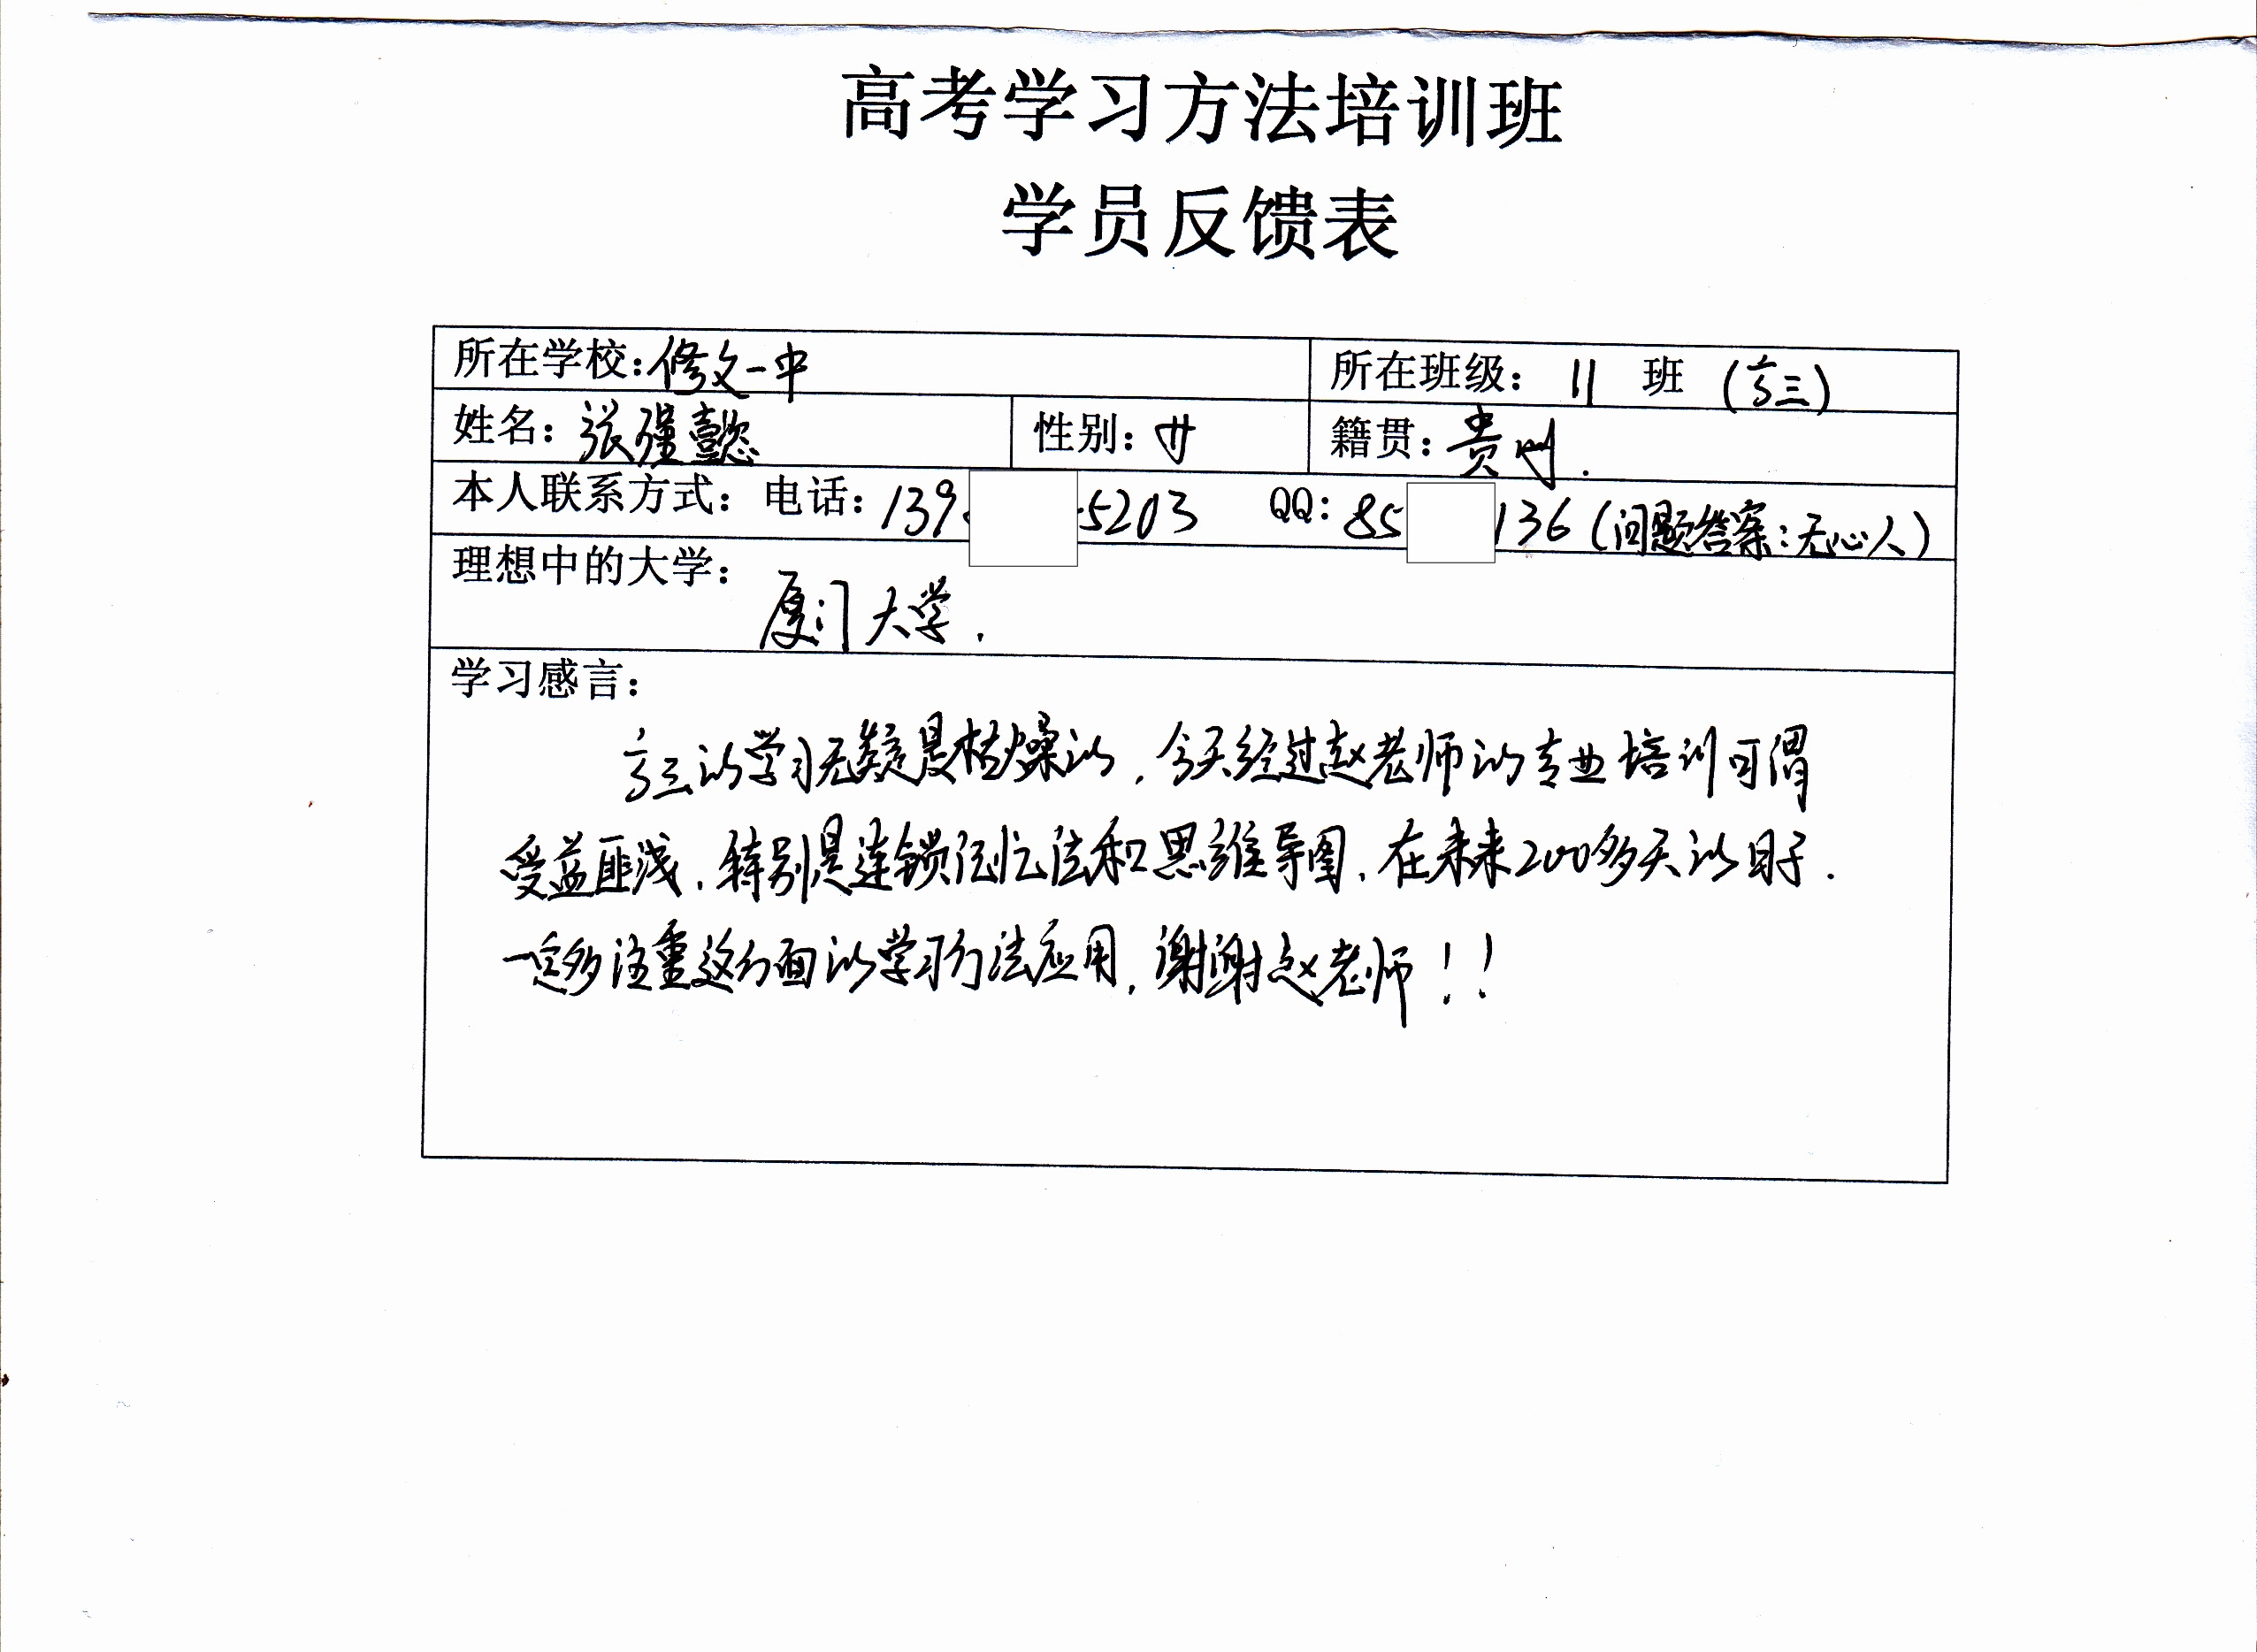 高考学习方法培训班
学员反馈表
所在学校：修文一中 所在班级： 11 班 （高三）
姓名：张瑾懿 性别：女 籍贯：贵州.
本人联系方式：电话：139 5203 QQ：85 136（问题答案：无心人）
理想中的大学：
厦门大学.
学习感言：
高三的学习无疑是枯燥的，今天经过赵老师的专业培训可谓
受益匪浅，特别是连锁记忆法和思维导图，在未来200多天的日子.
一定多注重这方面的学习方法应用，谢谢赵老师！！